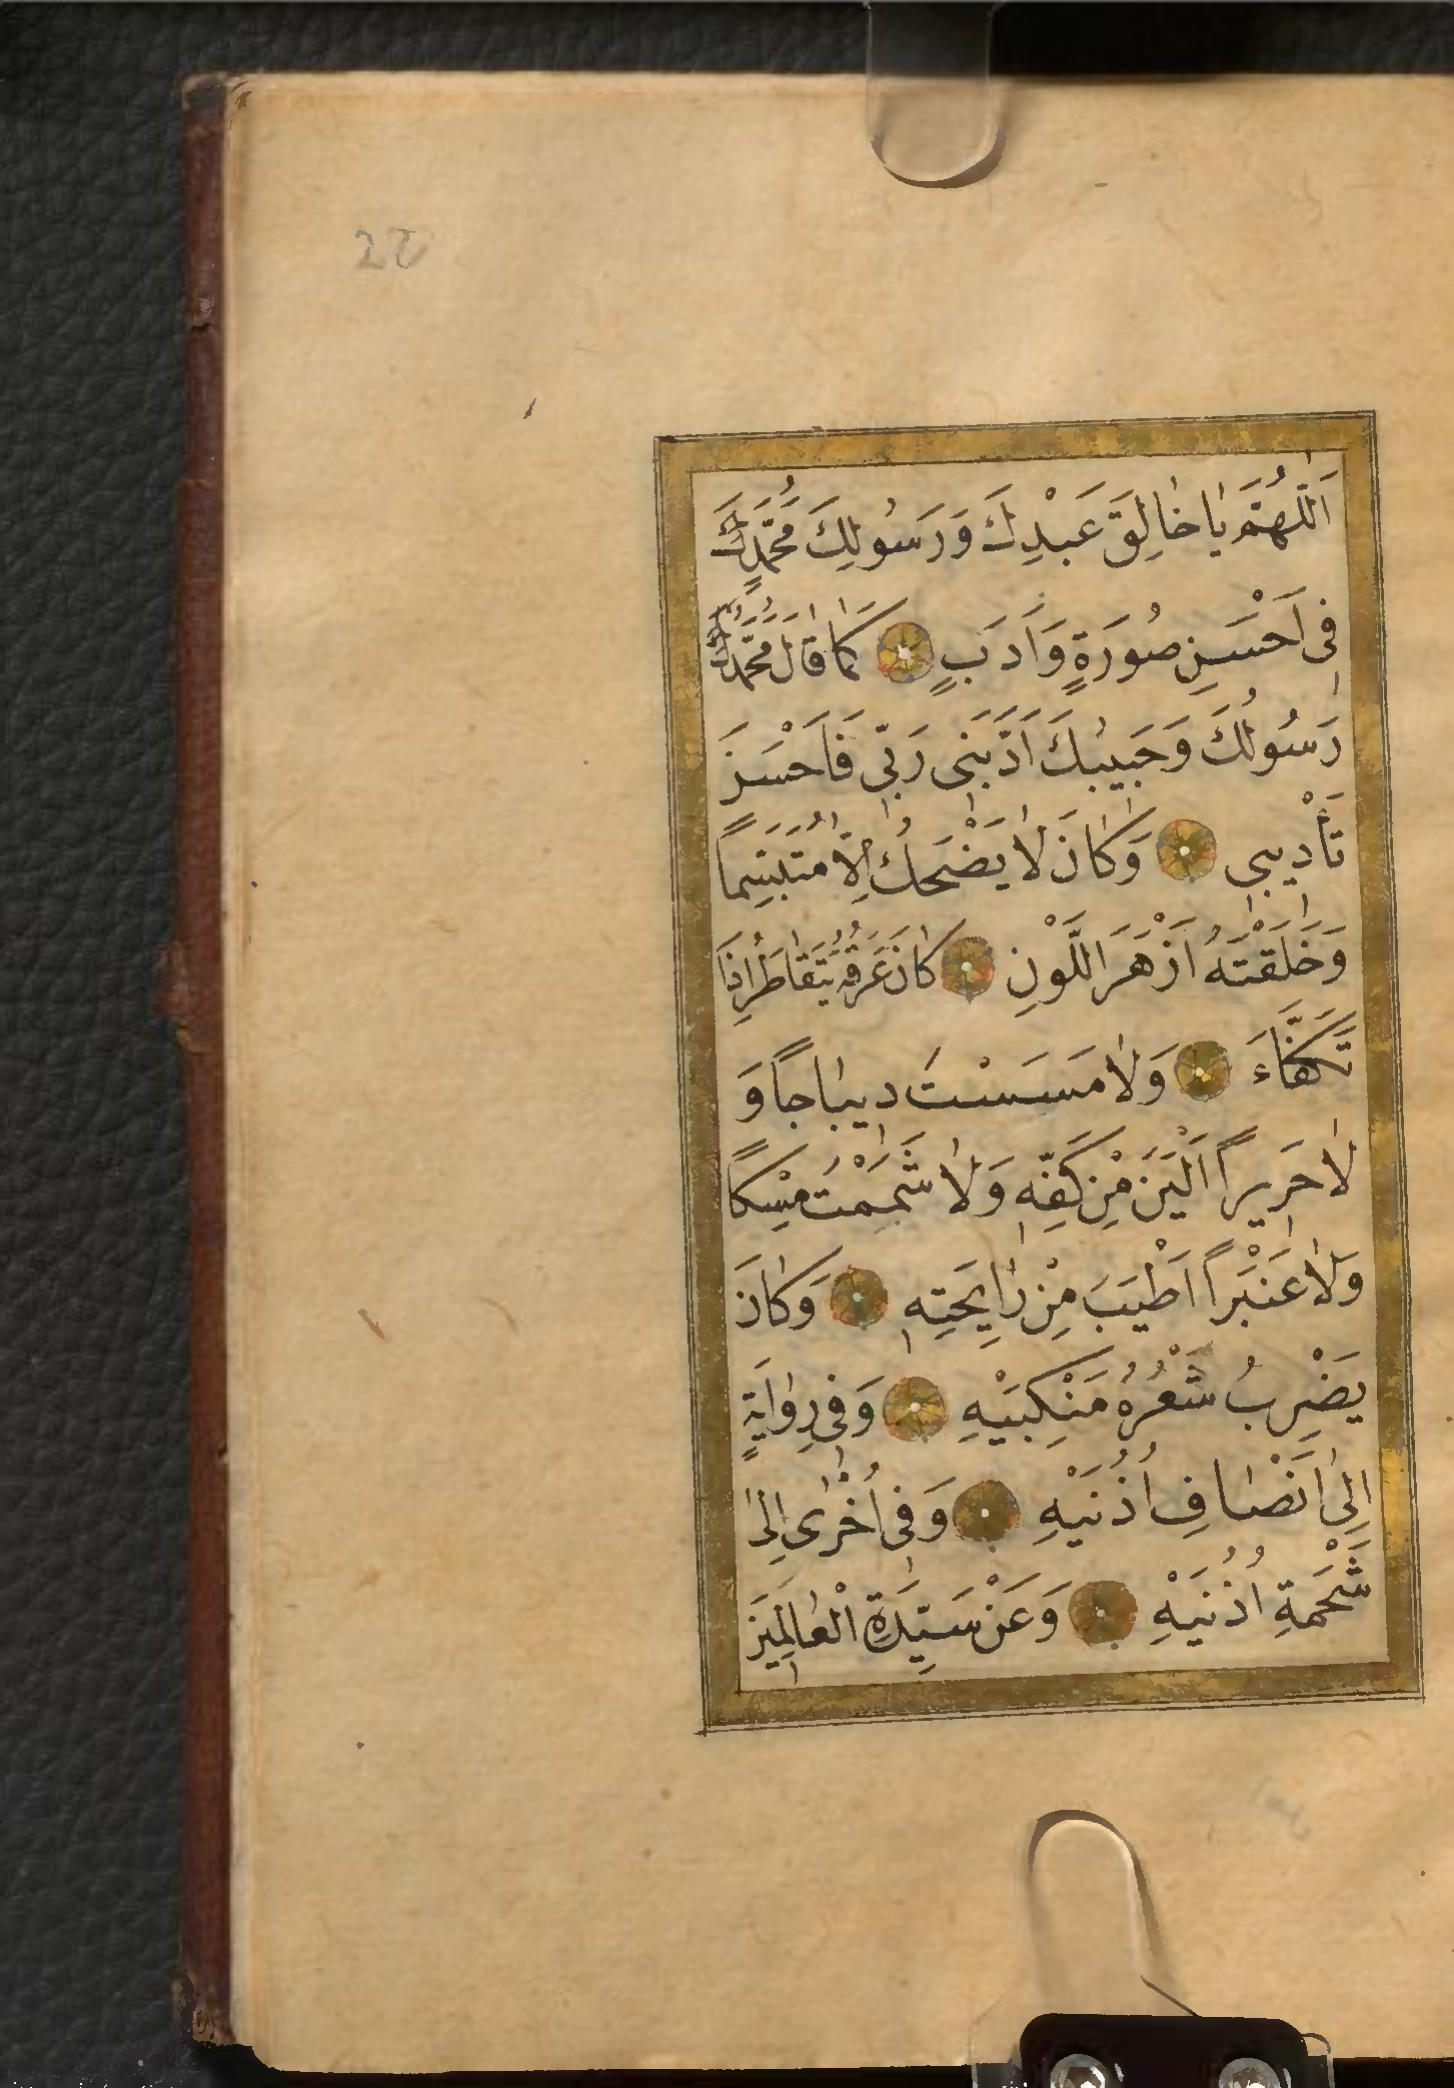 22
اَللّٰهُمَّ يٰا خٰالِقَ عَبْدِكَ وَرَسُولِكَ مُحَمَّدٍ
فِى اَحْسَنِ صُورَةٍ وَاَدَبٍ كَمٰا قٰالَ مُحَمَّدٌ
رَسُولُكَ وَحَبِيبُكَ اَدَّبَنِى رَبِّى فَاَحْسَنَ
تَأْدِيبِى وَكٰانَ لٰا يَضْحَكُ اِلّٰا مُتَبَسِّمًا
وَخَلَقْتَهُ اَزْهَرَ اللَّوْنِ كٰانَ عَرَقُهُ يَتَقٰاطَرُ اِذٰا
تَكَفَّاءَ وَلٰا مَسَسْتُ دِيبٰاجًا وَ
لٰا حَرِيرًا اَلْيَنَ مِنْ كَفِّهِ وَلٰا شَمَمْتُ مِسْكًا
وَلٰا عَنْبَرًا اَطْيَبَ مِنْ رٰايِحَتِهِ وَكٰانَ
يَضْرِبُ شَعْرُهُ مَنْكِبَيْهِ وَفِى رِوٰايَةٍ
اِلٰى اَنْصٰافِ اُذُنَيْهِ وَفِى اُخْرٰى اِلٰى
شَحْمَةِ اُذُنَيْهِ وَعَنْ سَيِّدَةِ الْعٰالَمِينَ